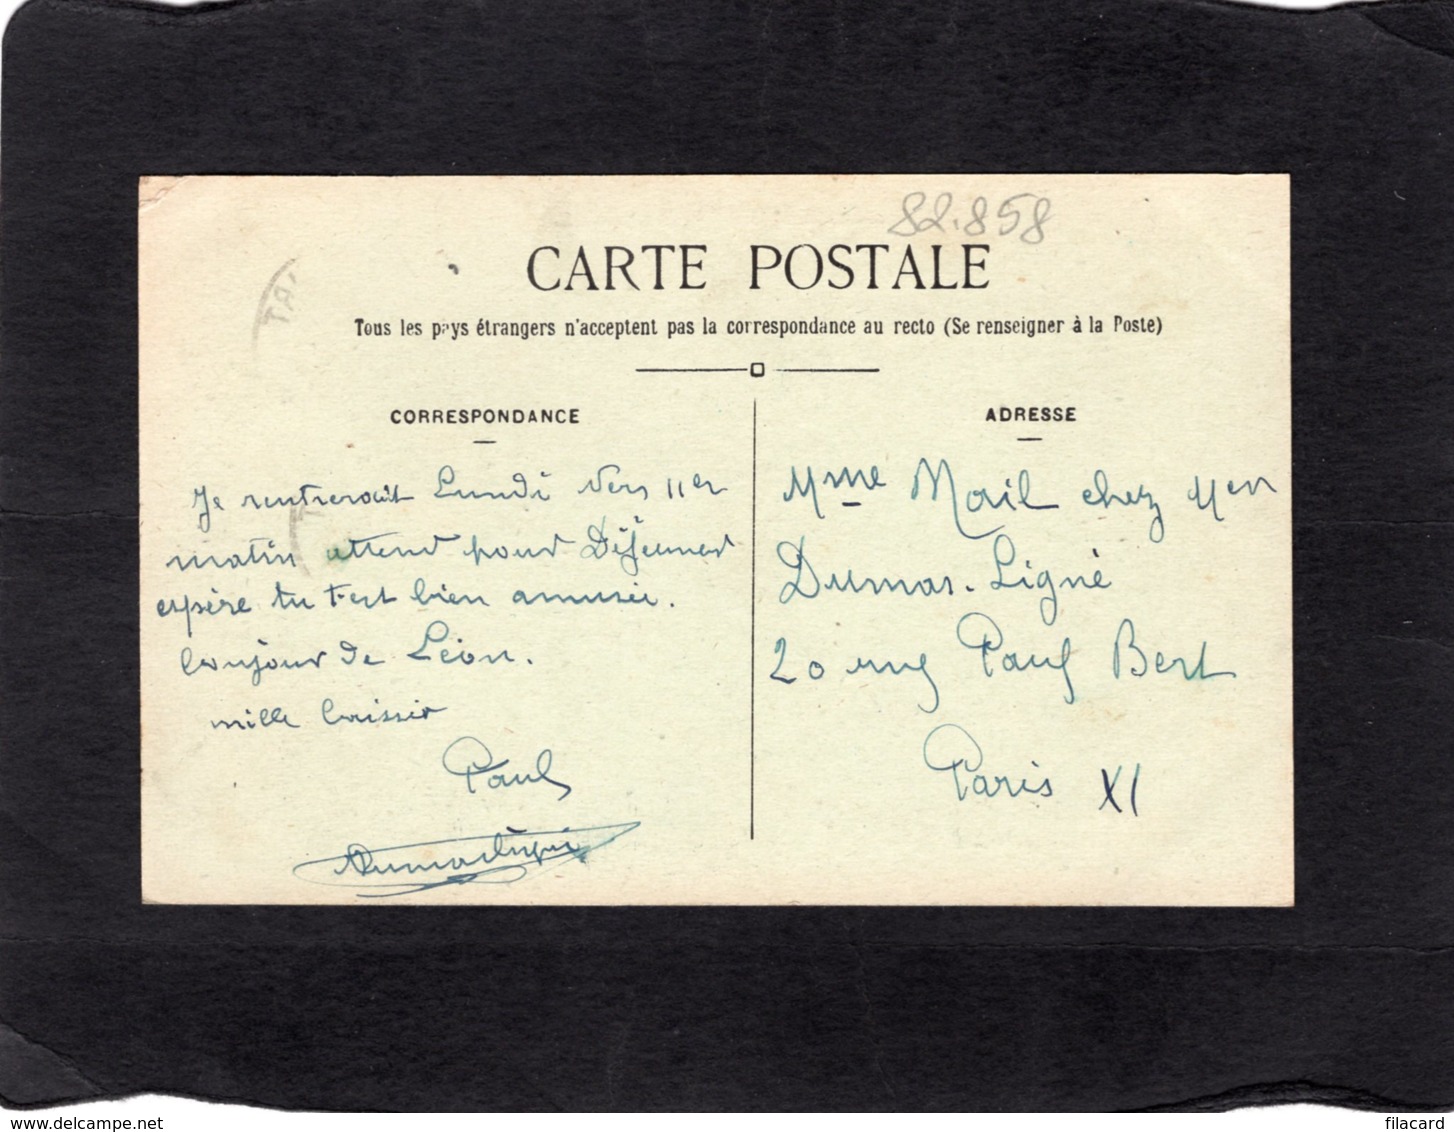 82.858
CARTE POSTALE
Tous les pays étrangers n'acceptent pas la correspondance au recto (Se renseigner à la Poste)
CORRESPONDANCE
ADRESSE
Je rentrerait Lundi vers 11er
matin attend pour Déjeuner
espère tu t'est bien amusée.
bonjour de Léon.
mille baisser
Paul
Mme Mail chez
Dumas. Ligné
20 rue Paul Bert
Paris XI
www.delcampe.net
filacard